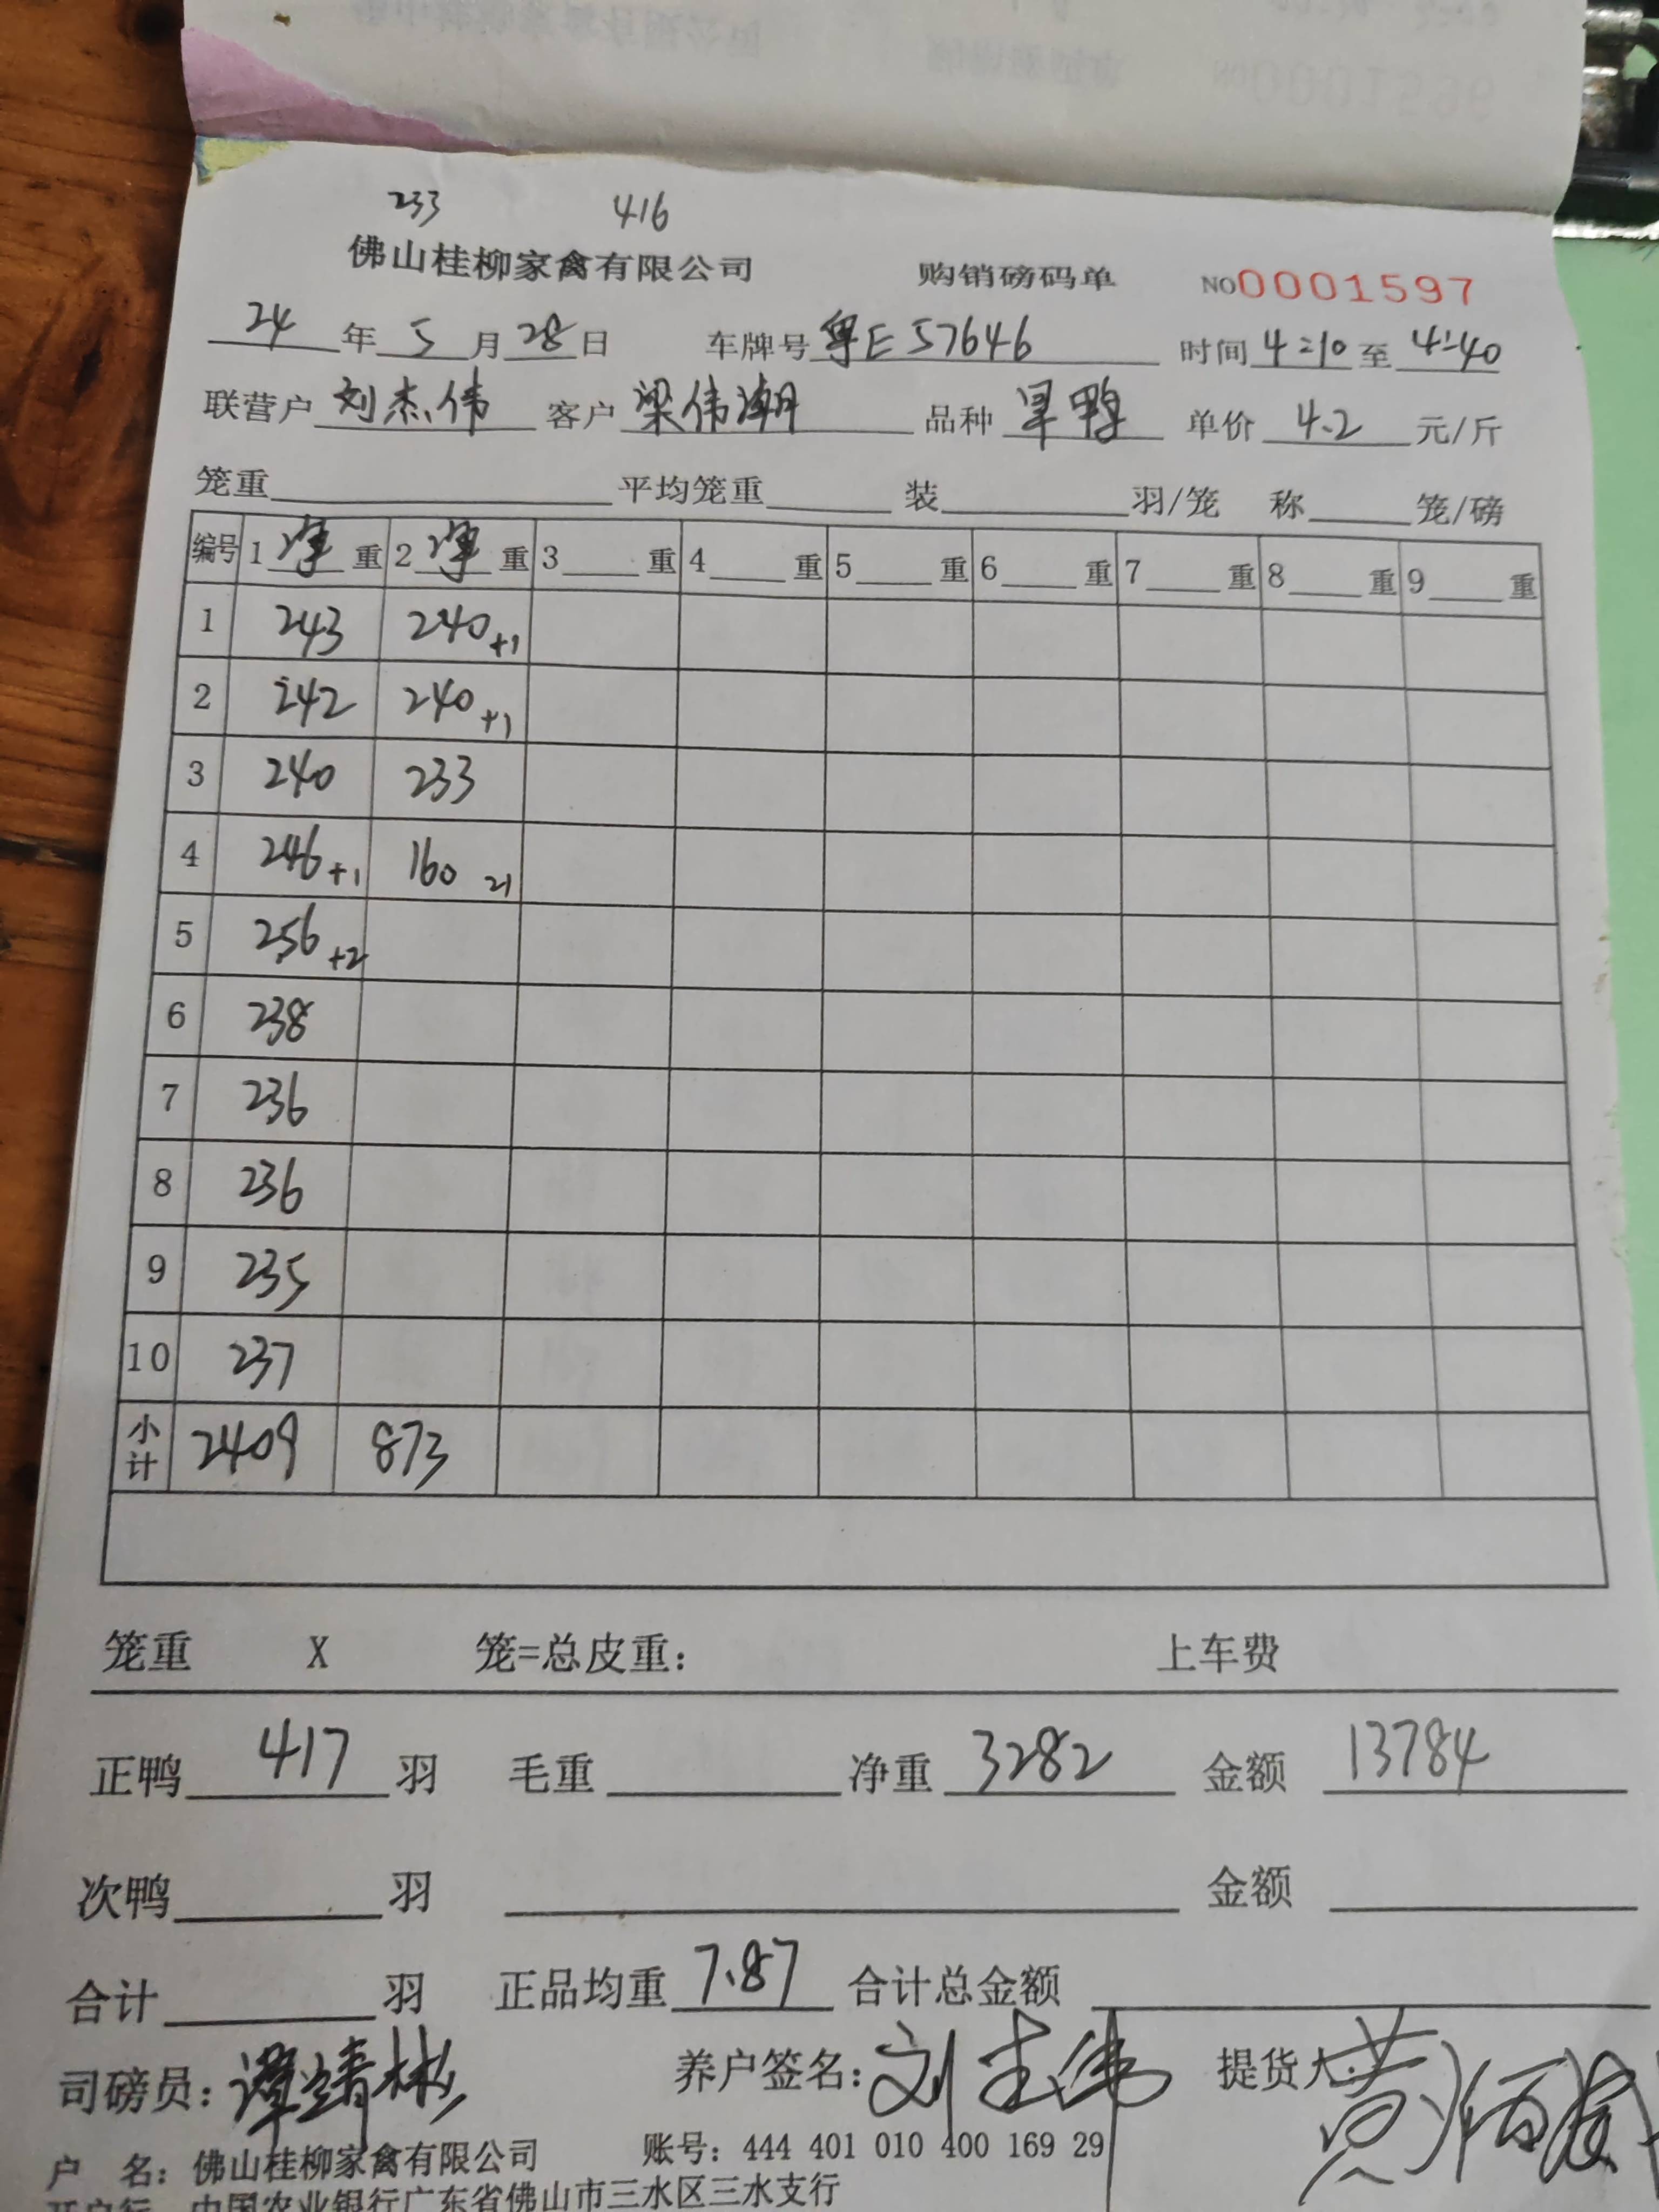 233 416
佛山桂柳家禽有限公司 购销磅码单 NO0001597
24年5月28日 车牌号粤E 57646 时间4:10至4:40
联营户刘杰伟 客户梁伟潮 品种旱鸭 单价4.2元/斤
笼重 平均笼重 装 羽/笼 称 笼/磅
编号 1净重 2净重 3 重 4 重 5 重 6 重 7 重 8 重 9 重
1 243 240+1
2 242 240+1
3 240 233
4 246+1 160 21
5 256+2
6 238
7 236
8 236
9 235
10 237
小计 2409 873
笼重 X 笼=总皮重: 上车费
正鸭417羽 毛重 净重3282 金额13784
次鸭 羽 金额
合计 羽 正品均重7.87 合计总金额
司磅员:谭靖彬 养户签名:刘杰伟 提货人:黄
户 名:佛山桂柳家禽有限公司 账号:444 401 010 400 169 29
开户行 中国农业银行广东省佛山市三水区三水支行